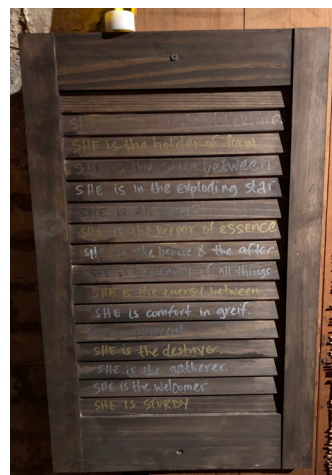 SHE is
SHE is the holder of form
SHE is the space between
SHE is in the exploding star
SHE is the keeper of essence
SHE is the before & the after
SHE is the of all things
SHE is the energy between
SHE is comfort in greif.
SHE is the destroyer.
SHE is the gatherer.
SHE is the welcomer
SHE IS STURDY